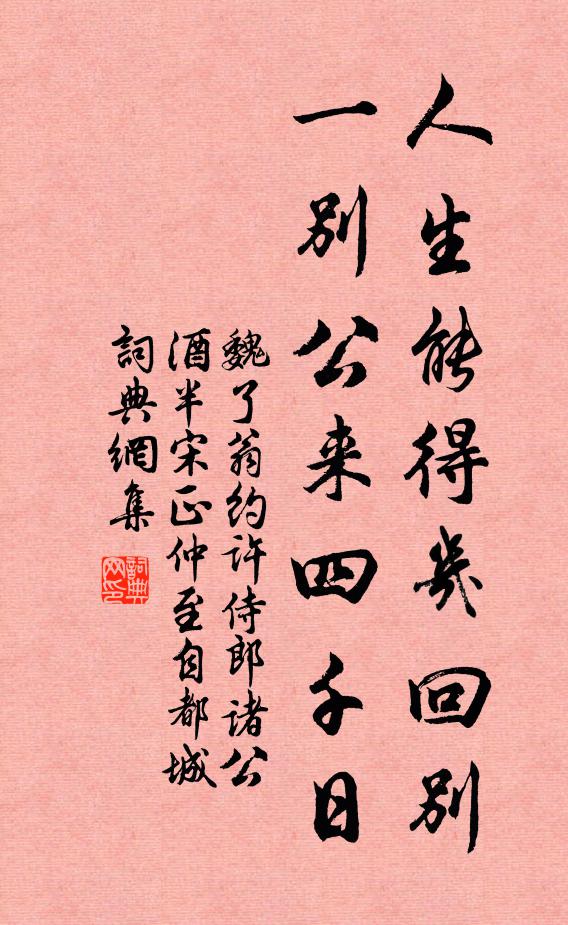 人生能得幾回別
一別公来四千日
魏了翁約許侍郎諸公
酒半宋正仲至自都城
詞典網集
詞典网印